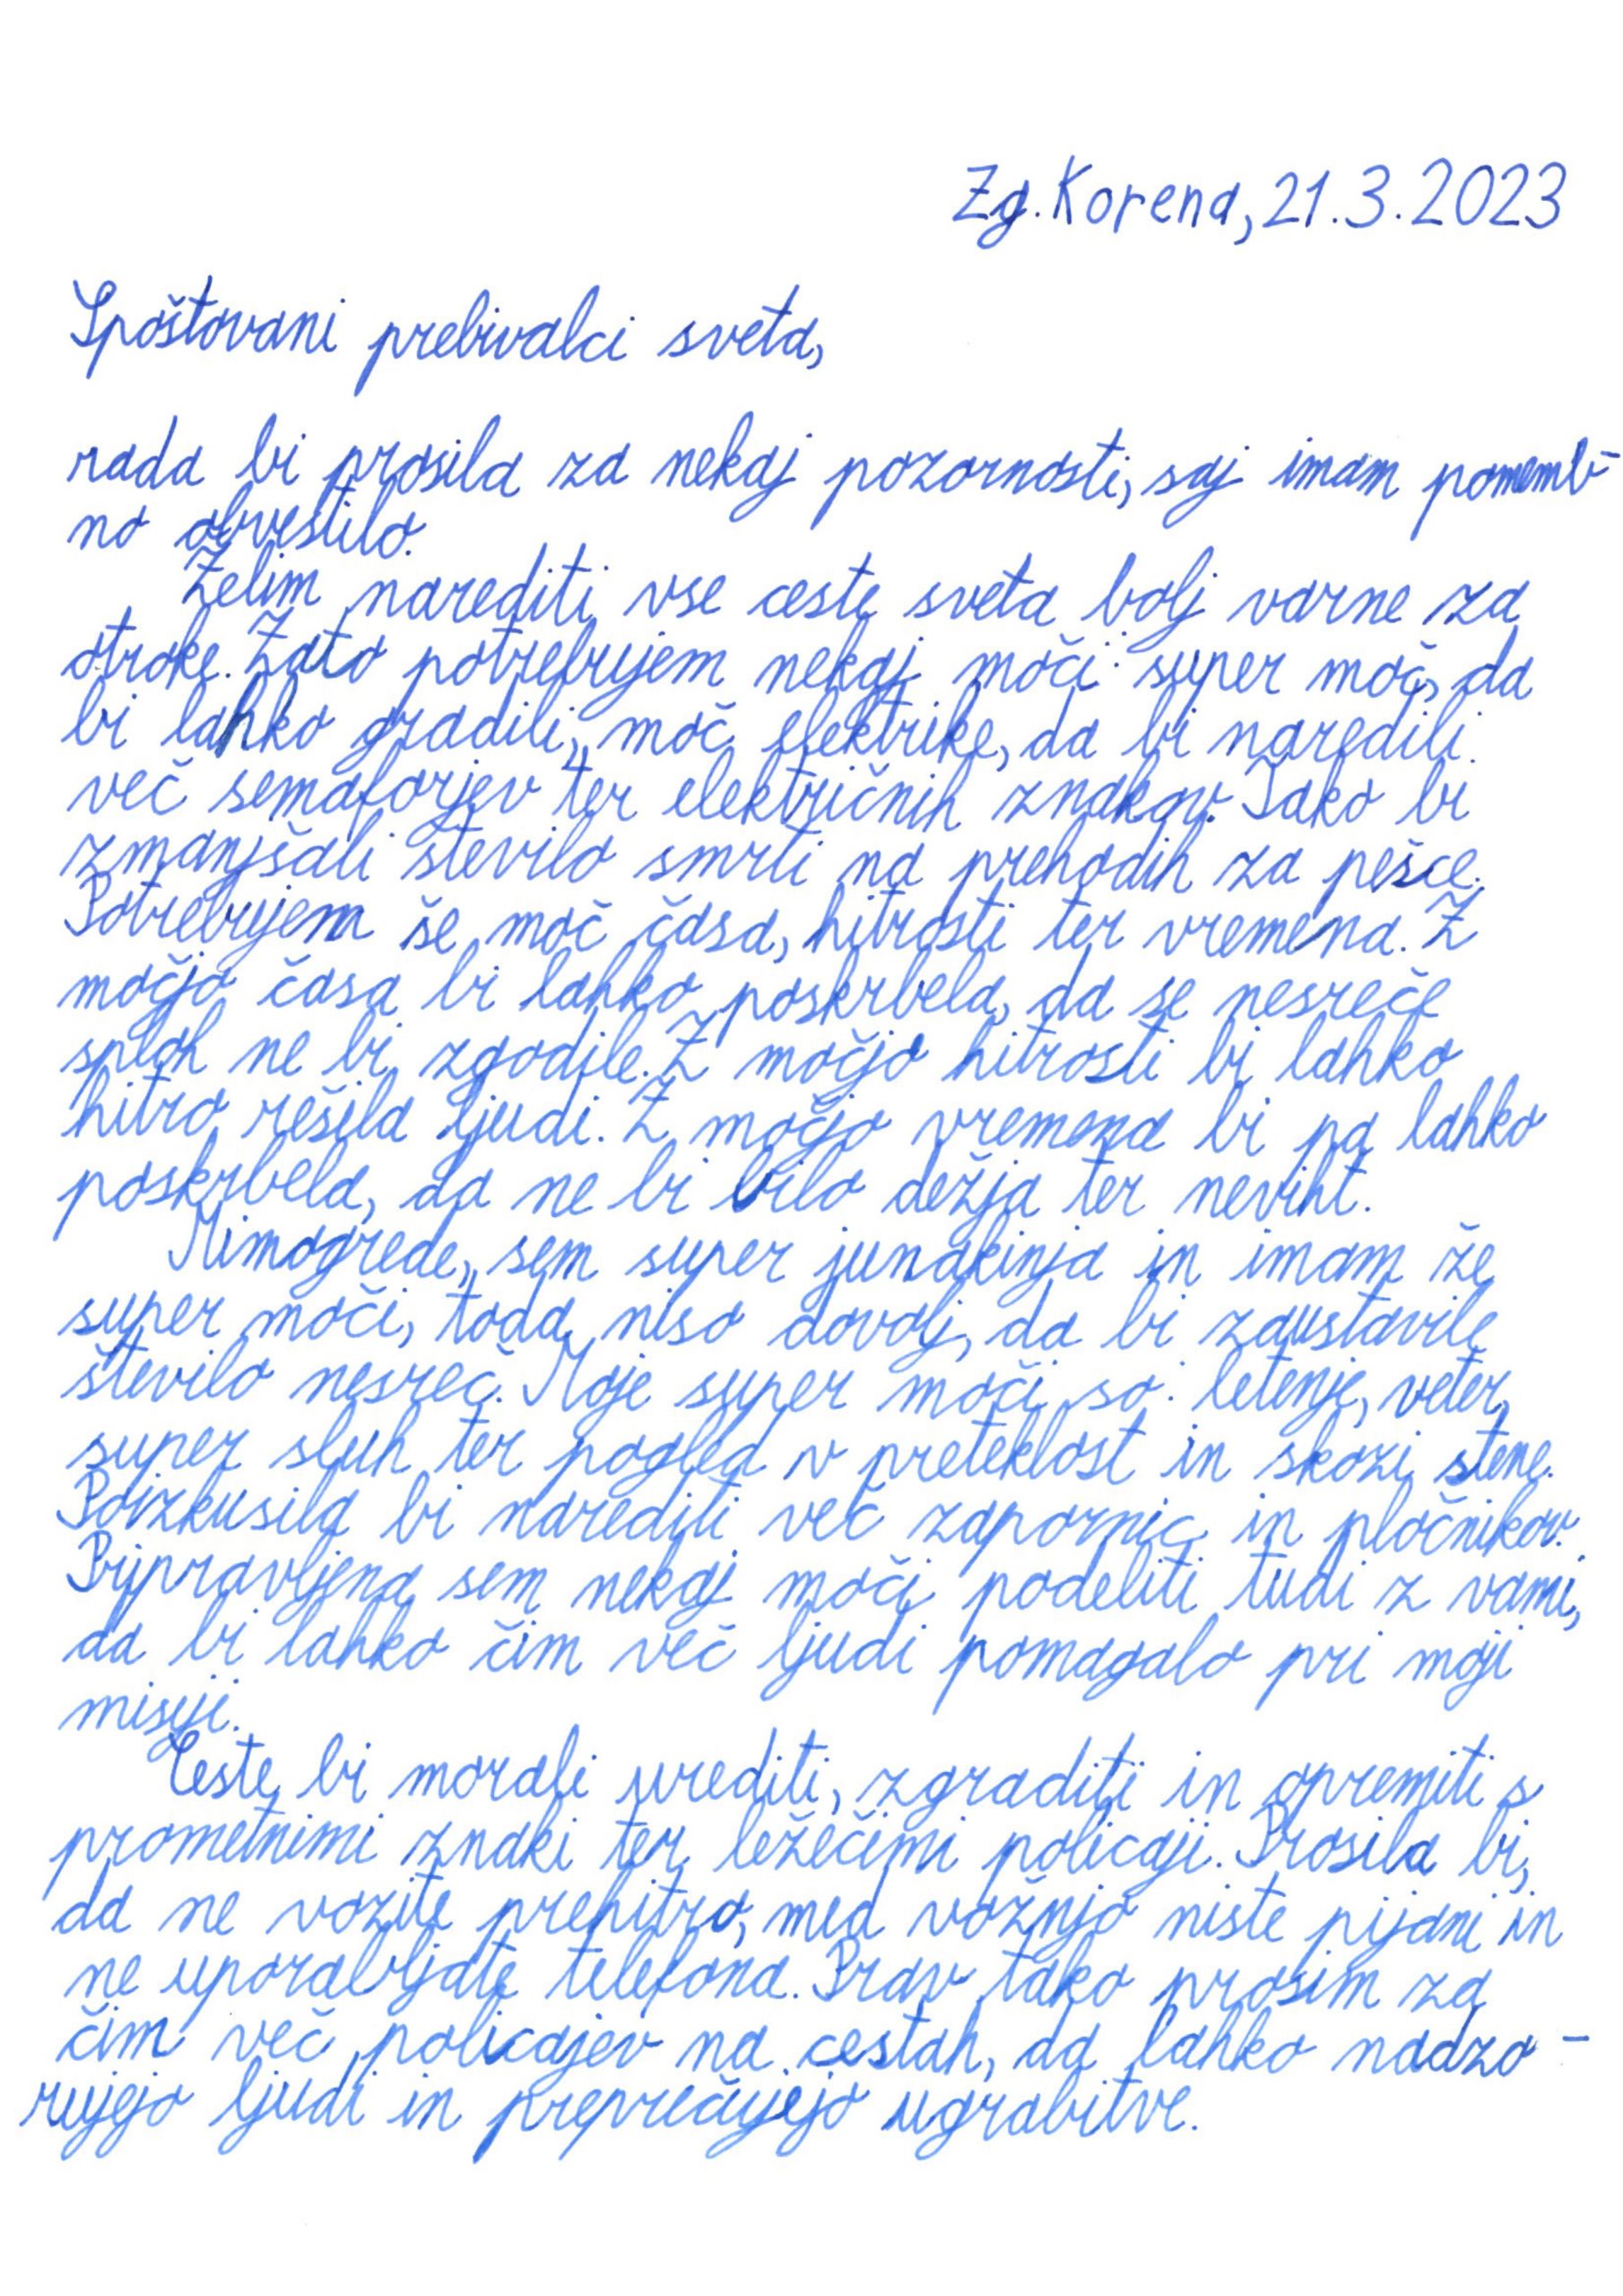 Zg. Korena, 21.3.2023
Spoštovani prebivalci sveta,
rada bi prosila za nekaj pozornosti, saj imam pomemb-
no obvestilo.
Želim narediti vse ceste sveta bolj varne za
otroke. Zato potrebujem nekaj moči: super moč, da
bi lahko gradili, moč elektrike, da bi naredili
več semaforjev ter električnih znakov. Tako bi
zmanjšali število smrti na prehodih za pešce.
Potrebujem še moč časa, hitrosti ter vremena. Z
močjo časa bi lahko poskrbela, da se nesreče
sploh ne bi zgodile. Z močjo hitrosti bi lahko
hitro rešila ljudi. Z močjo vremena bi pa lahko
poskrbela, da ne bi bilo dežja ter neviht.
Mimogrede, sem super junakinja in imam že
super moči, toda niso dovolj, da bi zaustavile
število nesreč. Moje super moči so: letenje, veter,
super sluh ter pogled v preteklost in skozi stene.
Poizkusila bi narediti več zapornic in pločnikov.
Pripravljena sem nekaj moči podeliti tudi z vami,
da bi lahko čim več ljudi pomagalo pri moji
misiji.
Ceste bi morali urediti, zgraditi in opremiti s
prometnimi znaki ter ležečimi policaji. Prosila bi,
da ne vozite prehitro, med vožnjo niste pijani in
ne uporabljate telefona. Prav tako prosim za
čim več policajev na cestah, da lahko nadzo-
rujejo ljudi in preprečujejo ugrabitve.